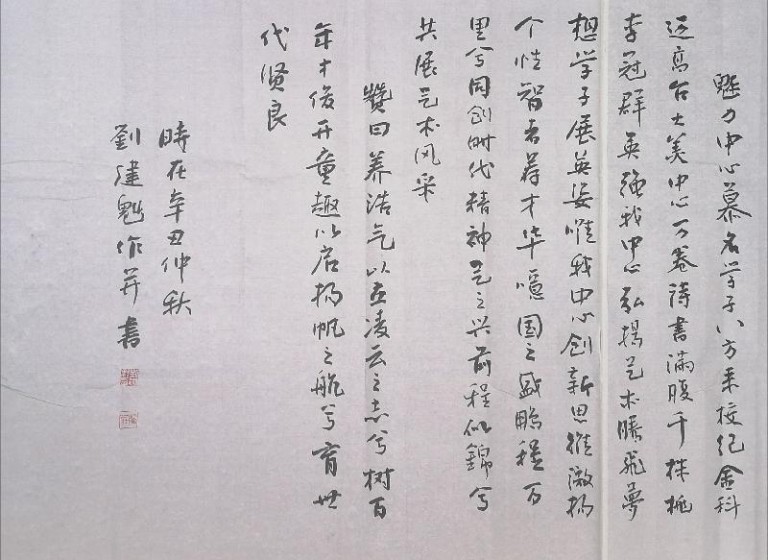 魅力中心慕名学子八方来校纪余科
运高台大美中心万卷诗书满腹千株桃
李冠群英强我中心弘揚艺术腾飛夢
想学子展英姿惟我中心创新思维激扬
个性智者荐才华噫国之盛鹏程万
里兮同创时代精神艺之兴前程似錦兮
共展艺术风采
贊曰养浩气以立凌云之志兮树百
年才俊开童趣以启揚帆之航兮育世
代贤良
時在辛丑仲秋
劉建魁作并書